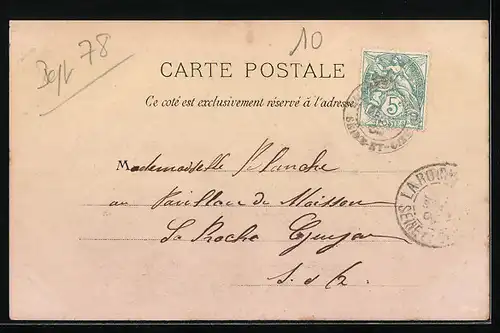 Dept 78
10
CARTE POSTALE
Ce coté est exclusivement réservé à l'adresse
5
POSTES
SEINE-ET-OISE
Mademoiselle Blanche
au Pavillon de Maisson
La Roche Guyon
S. & O.
LA ROCHE
SEINE